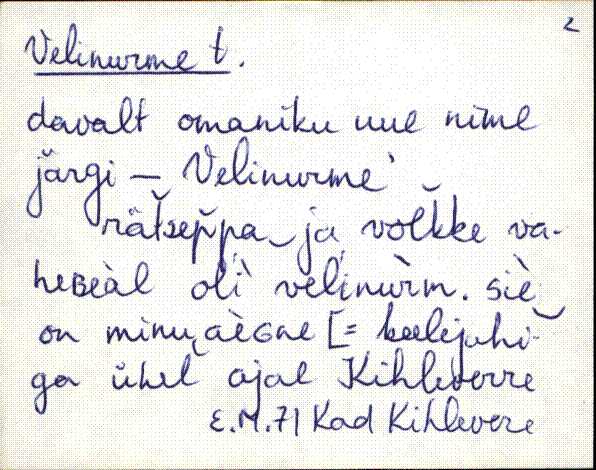 2
Velinurme t.
davalt omaniku uue nime
järgi – Velinurme
rätseppa ja võlkke va-
heᴢèàl oli velinùrm. siè
on minu aèGne [= keelejuhi-
ga ühel ajal Kihleverre
E.M.71 Kad Kihlevere